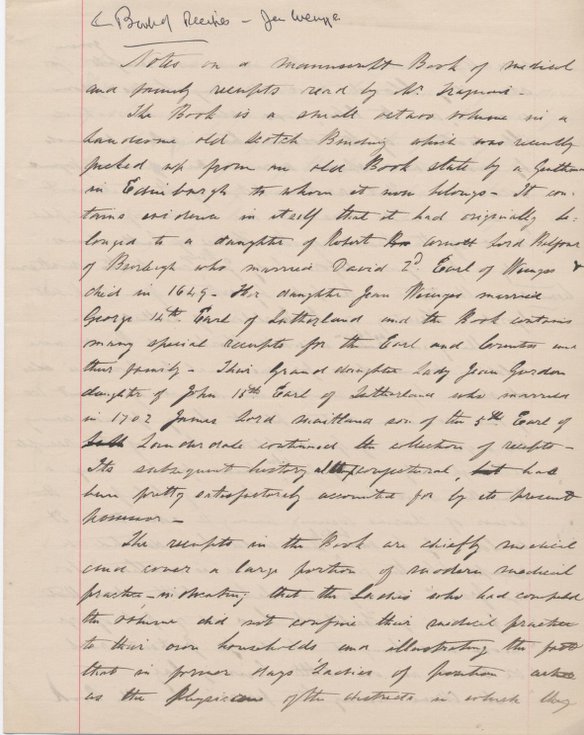 Book of Receipes - Jean Wemyss
Notes on a manuscript Book of medical
and family receipts read by Mr
The Book is a small octavo volume in a
handsome old Scotch Binding which was recently
picked up from an old Book stall by a Gentleman
in Edinburgh to whom it now belongs - It con-
tains evidence in itself that it had originally be-
longed to a daughter of Robert Arnott Lord Balfour
of Burleigh who married David 2d. Earl of Wemyss &
died in 1649 - Her daughter Jean Wemyss married
George 14th. Earl of Sutherland and the Book contains
many special receipts for the Earl and Countess and
their family - Their Grand daughter Lady Jean Gordon
daughter of John 15th Earl of Sutherland who married
in 1702 James Lord Maitland son of the 5th Earl of
Lauderdale continued the collection of receipts -
Its subsequent history conjectural, but had
been pretty satisfactorily accounted for by its present
possessor -
The receipts in the Book are chiefly medical
and cover a large portion of modern medical
practice - indicating that the Ladies who had compiled
the volume did not confine their medical practice
to their own households and illustrating the fact
that in former days Ladies of position acted
as the physicians of the districts in which they